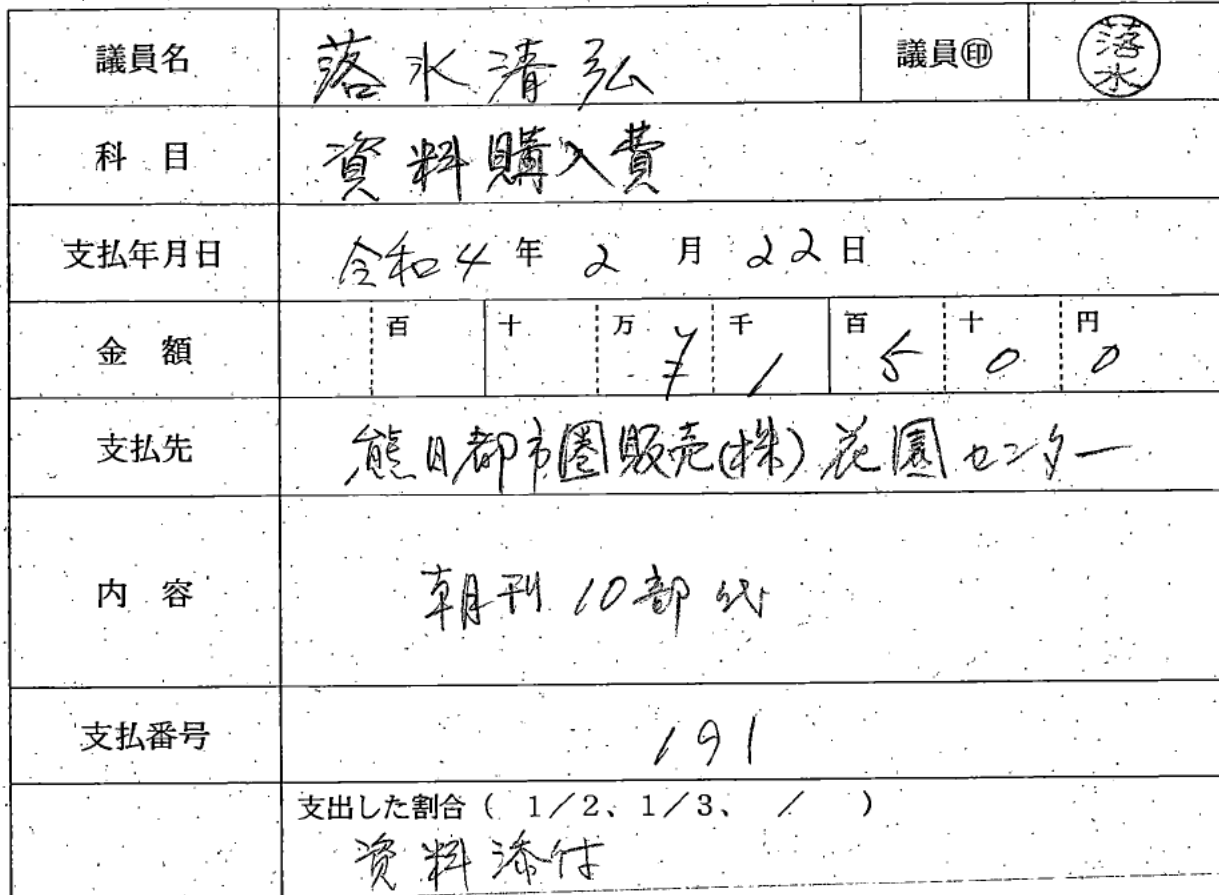 議員名 落水清弘 議員㊞ 落水
科 目 資料購入費
支払年月日 令和4年 2月 22日
金 額 百 十 万 ¥ 千 1 百 5 十 0 円 0
支払先 熊日都市圏販売(株)花園センター
内 容 朝刊10部代
支払番号 191
支出した割合( 1/2、1/3、 / )
資料添付